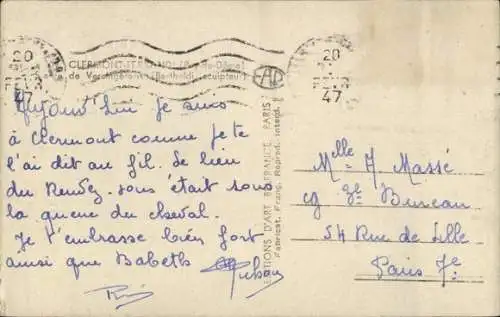 20
47
CLERMONT-FERRAND (Puy-de-Dôme)
de Vercingétorix (Bartholdi, sculpteur)
20
47
Aujourd'hui je suis
à Clermont comme je te
l'ai dit au fil. Le lieu
du Rendez-vous était sous
la queue du cheval.
Je t'embrasse bien fort
ainsi que Babeth
EDITIONS D'ART R. FRANCE, PARIS
Fabricat. Franç. Reprod. interd.
Melle A. Massé
54 Rue de Lille
Paris 7e